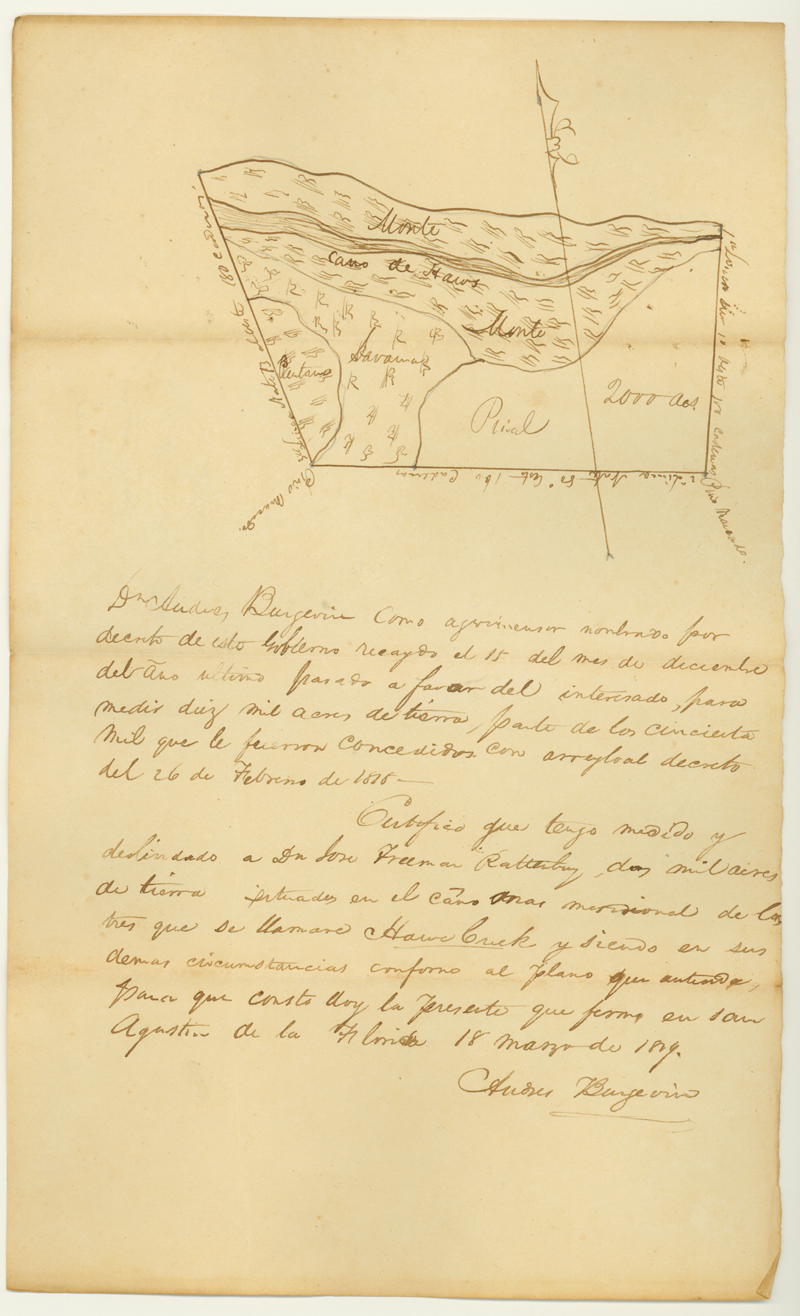 Monte
Caño de Haws
Monte
Savanna
Pantano
Pinal
2000 acs.
2a Linea Norte 80° Oeste 180 Cadenas
Pino Marcado.
Pino Marcado.
Dn Andres Burgevin como agrimensor nombrado por
decreto de este Gobierno recaydo el 15 del mes de diciembre
del año ultimo pasado a favor del interesado, para
medir diez mil acres de tierra, parte de los cincuenta
Mil que le fuerron concedidos con arreglo al decreto
del 26 de Febrero de 1818 —
Certifico que tengo medido y
deslindado a Dn Jose Freeman Rattenbuy, dos mil acres
de tierra situados en el caño mas meridional de los
tres que se llaman Hawe Creek y siendo en sus
demas circumstancias conforme al plano que
para que conste doy la presente que firmo en san
Agustin de la Florida 18 marzo de 1819.
Andres Burgevin